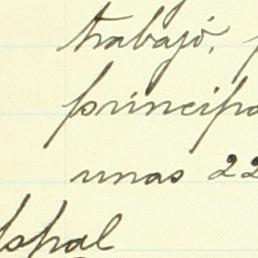 trabajó,
principa
unas 22
spal